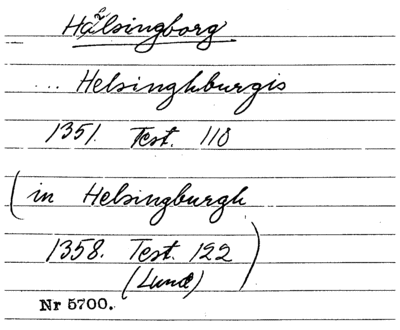 Hälsingborg
... Helsinghburgis
1351. Test. 110
(in Helsingburgh
1358. Test. 122)
(Lund)
Nr 5700.